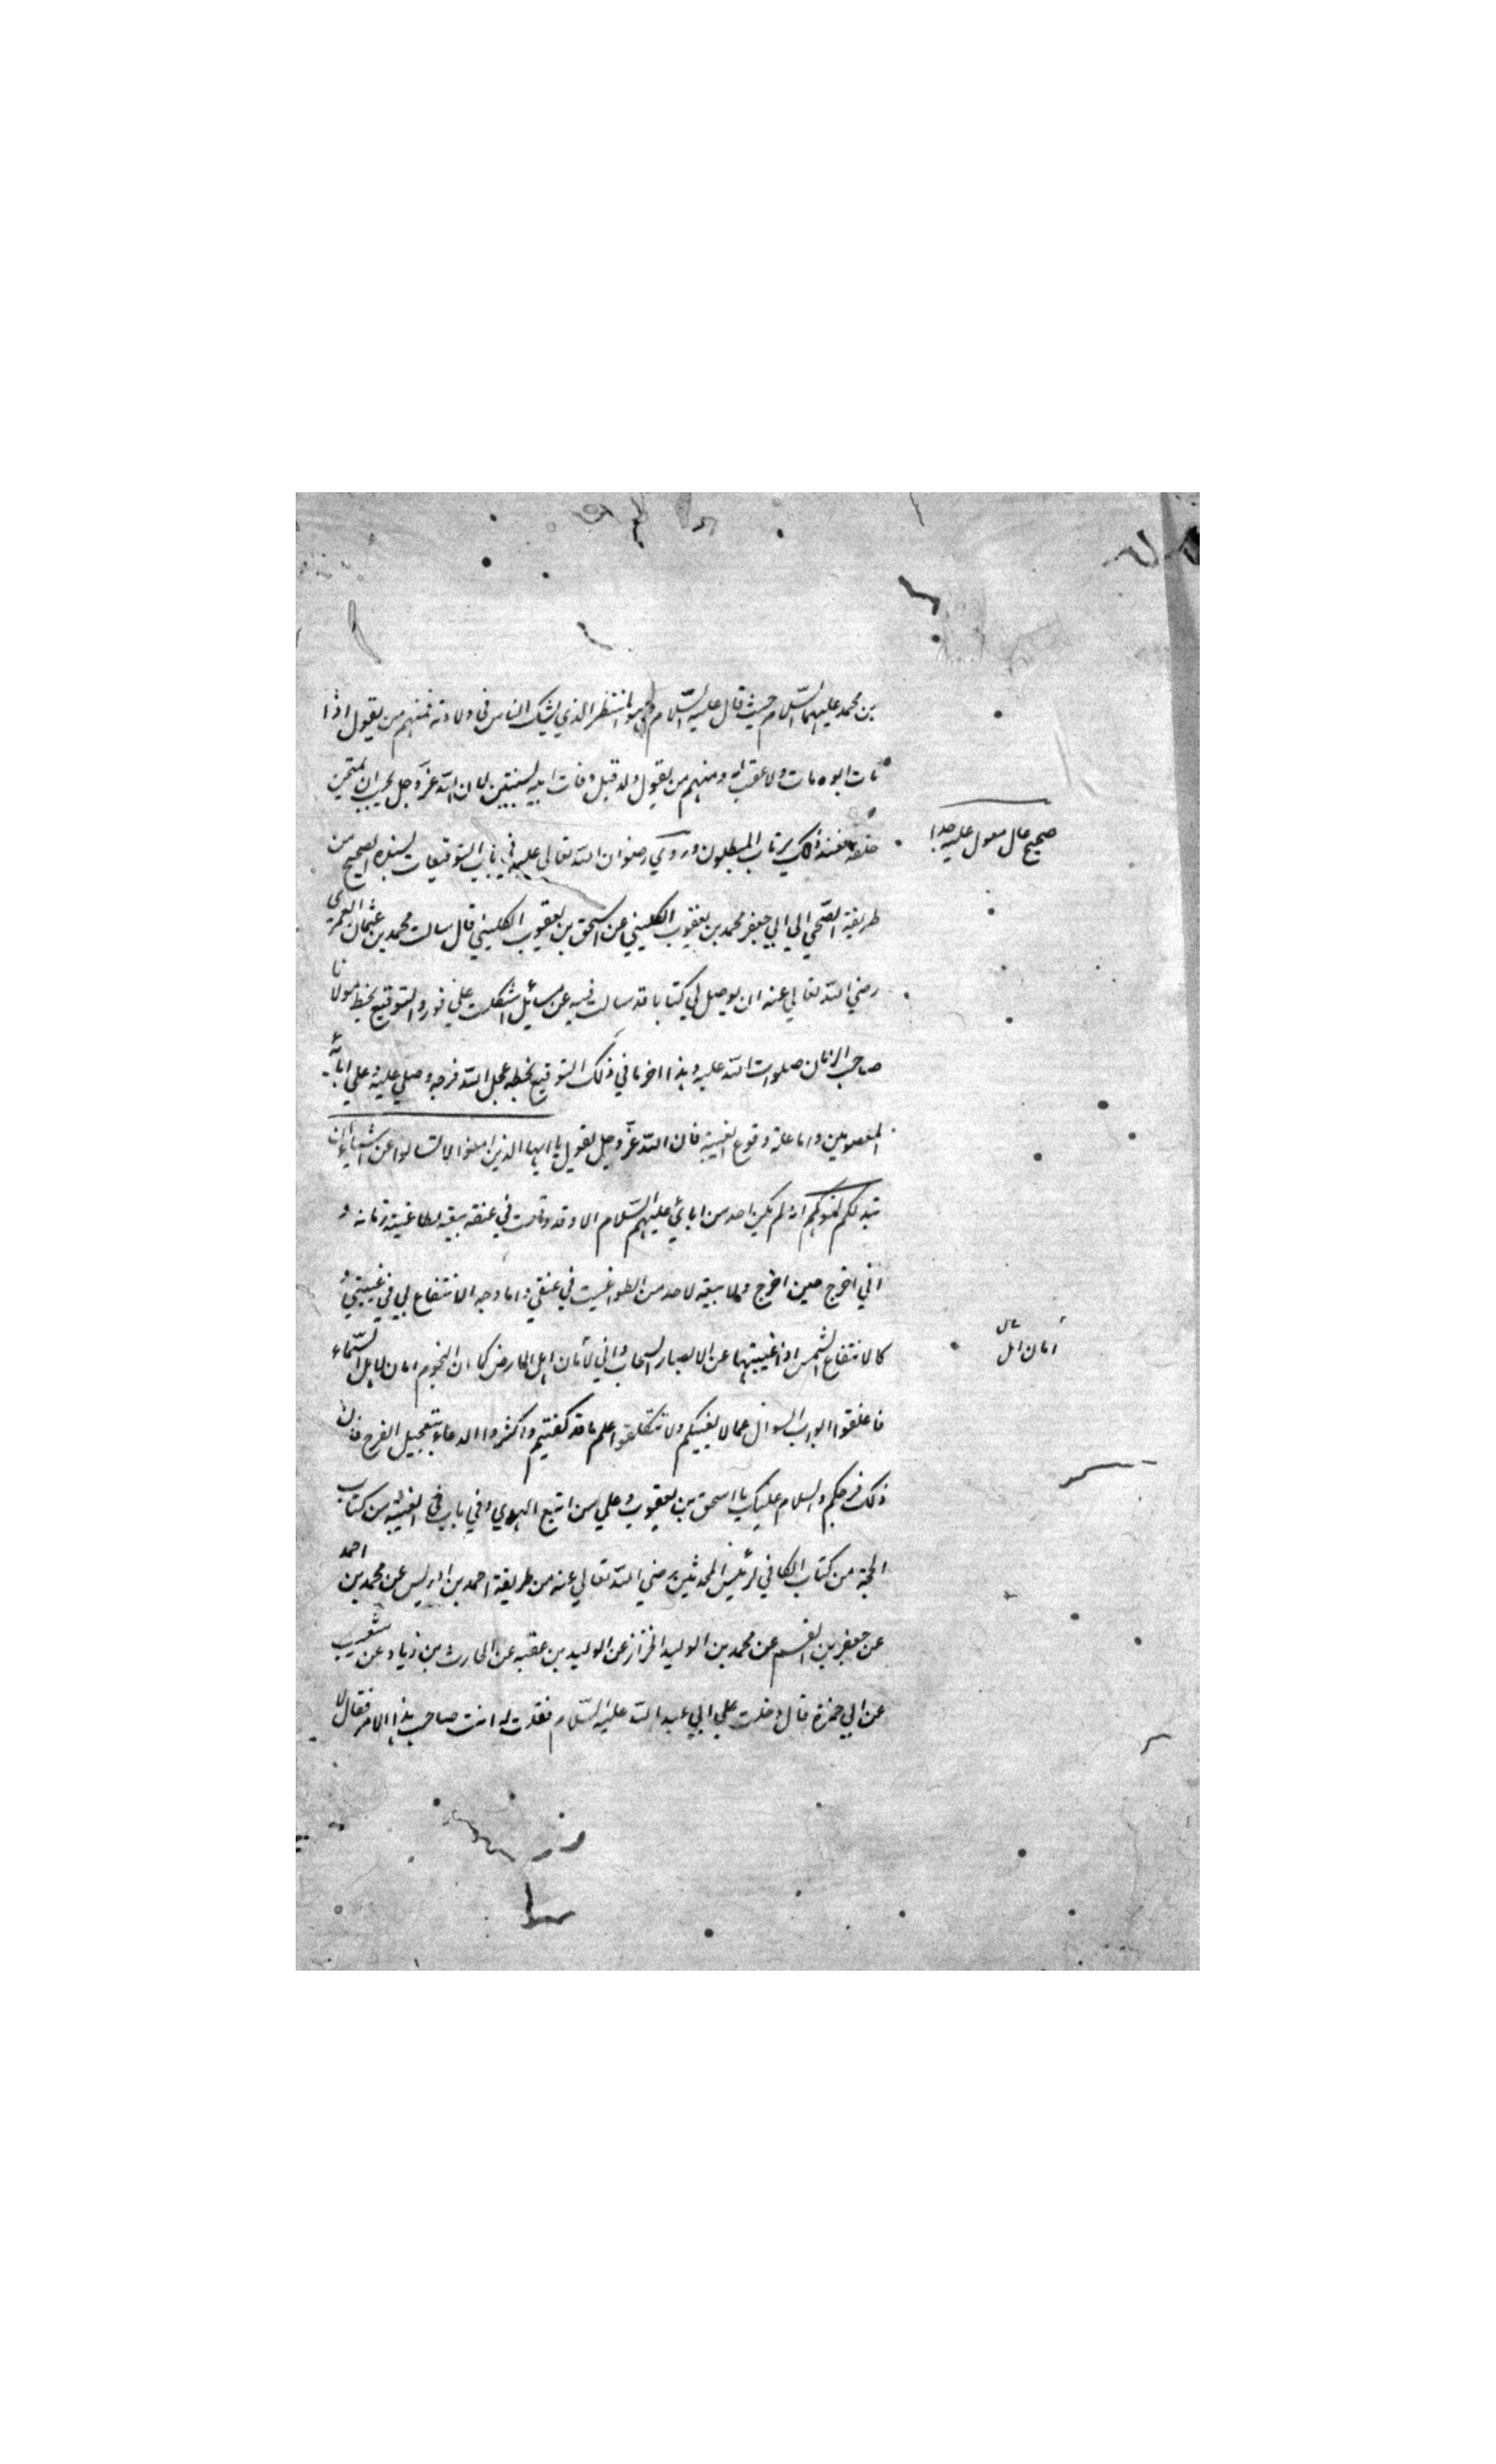 بن محمد عليهما السّلام حيث قال عليه السّلام وهو المنتظر الذي يشك الناس في ولادته فمنهم من يقول اذا
مات ابوه مات ولا عقب له ومنهم من يقول ولد قبل وفات ابيه بسنتين لان اللّه عزّ وجل يحب ان يمتحن
خلقه فعند ذلك يرتاب المبطلون وروي رضوان اللّه تعالى عليه في باب التوقيعات بسنده الصحيح من
صحيح عال معول عليه جدا
طريقة الصحي الي ابي جعفر محمد بن يعقوب الكليني عن اسحق بن يعقوب الكليني قال سالت محمد بن عثمان العمري
رضي اللّه تعالي عنه ان يوصل لي كتابا قد سالت فيه عن مسائل اشكلت علي فورد التوقيع بخط مولانا
صاحب الزمان صلوات اللّه عليه وهذا اخر ما في ذلك التوقيع بخطه عجل اللّه فرجه وصلي عليه وعلي ابائه
المعصومين واما علة وقوع الغيبة فان اللّه عزّ وجل يقول يا ايها الذين امنوا لا تسالوا عن اشياء ان
تبد لكم تسؤكم انه لم يكن احد من ابائي عليهم السّلام الا وقد وقعت في عنقه بيعة لطاغية زمانه و
اني اخرج حين اخرج ولا بيعة لاحد من الطواغيت في عنقي واما وجه الانتفاع بي في غيبتي و
كالانتفاع الشمس اذا غيبتها عن الابصار السحاب واني لأمان اهل الارض كما ان النجوم امان لاهل السّماء
امان اهل
فاغلقوا ابواب السوال عما لا يعنيكم ولا تتكلفوا علم ما قد كفيتم واكثروا الدعاء بتعجيل الفرج فان
ذلك فرجكم والسلام عليك يا اسحق بن يعقوب وعلي من اتبع الهدي وفي باب في الغيبة من كتاب
الحجة من كتاب الكافي لرئيس المحدثين رضي اللّه تعالي عنه من طريقة احمد بن ادريس عن محمد بن احمد
عن جعفر بن القسم عن محمد بن الوليد الخزاز عن الوليد بن عقبه عن الحارث بن زياد عن شعيب
عن ابي حمزة قال دخلت علي ابي عبد اللّه عليه السّلام فقلت له انت صاحب هذا الامر فقال لا